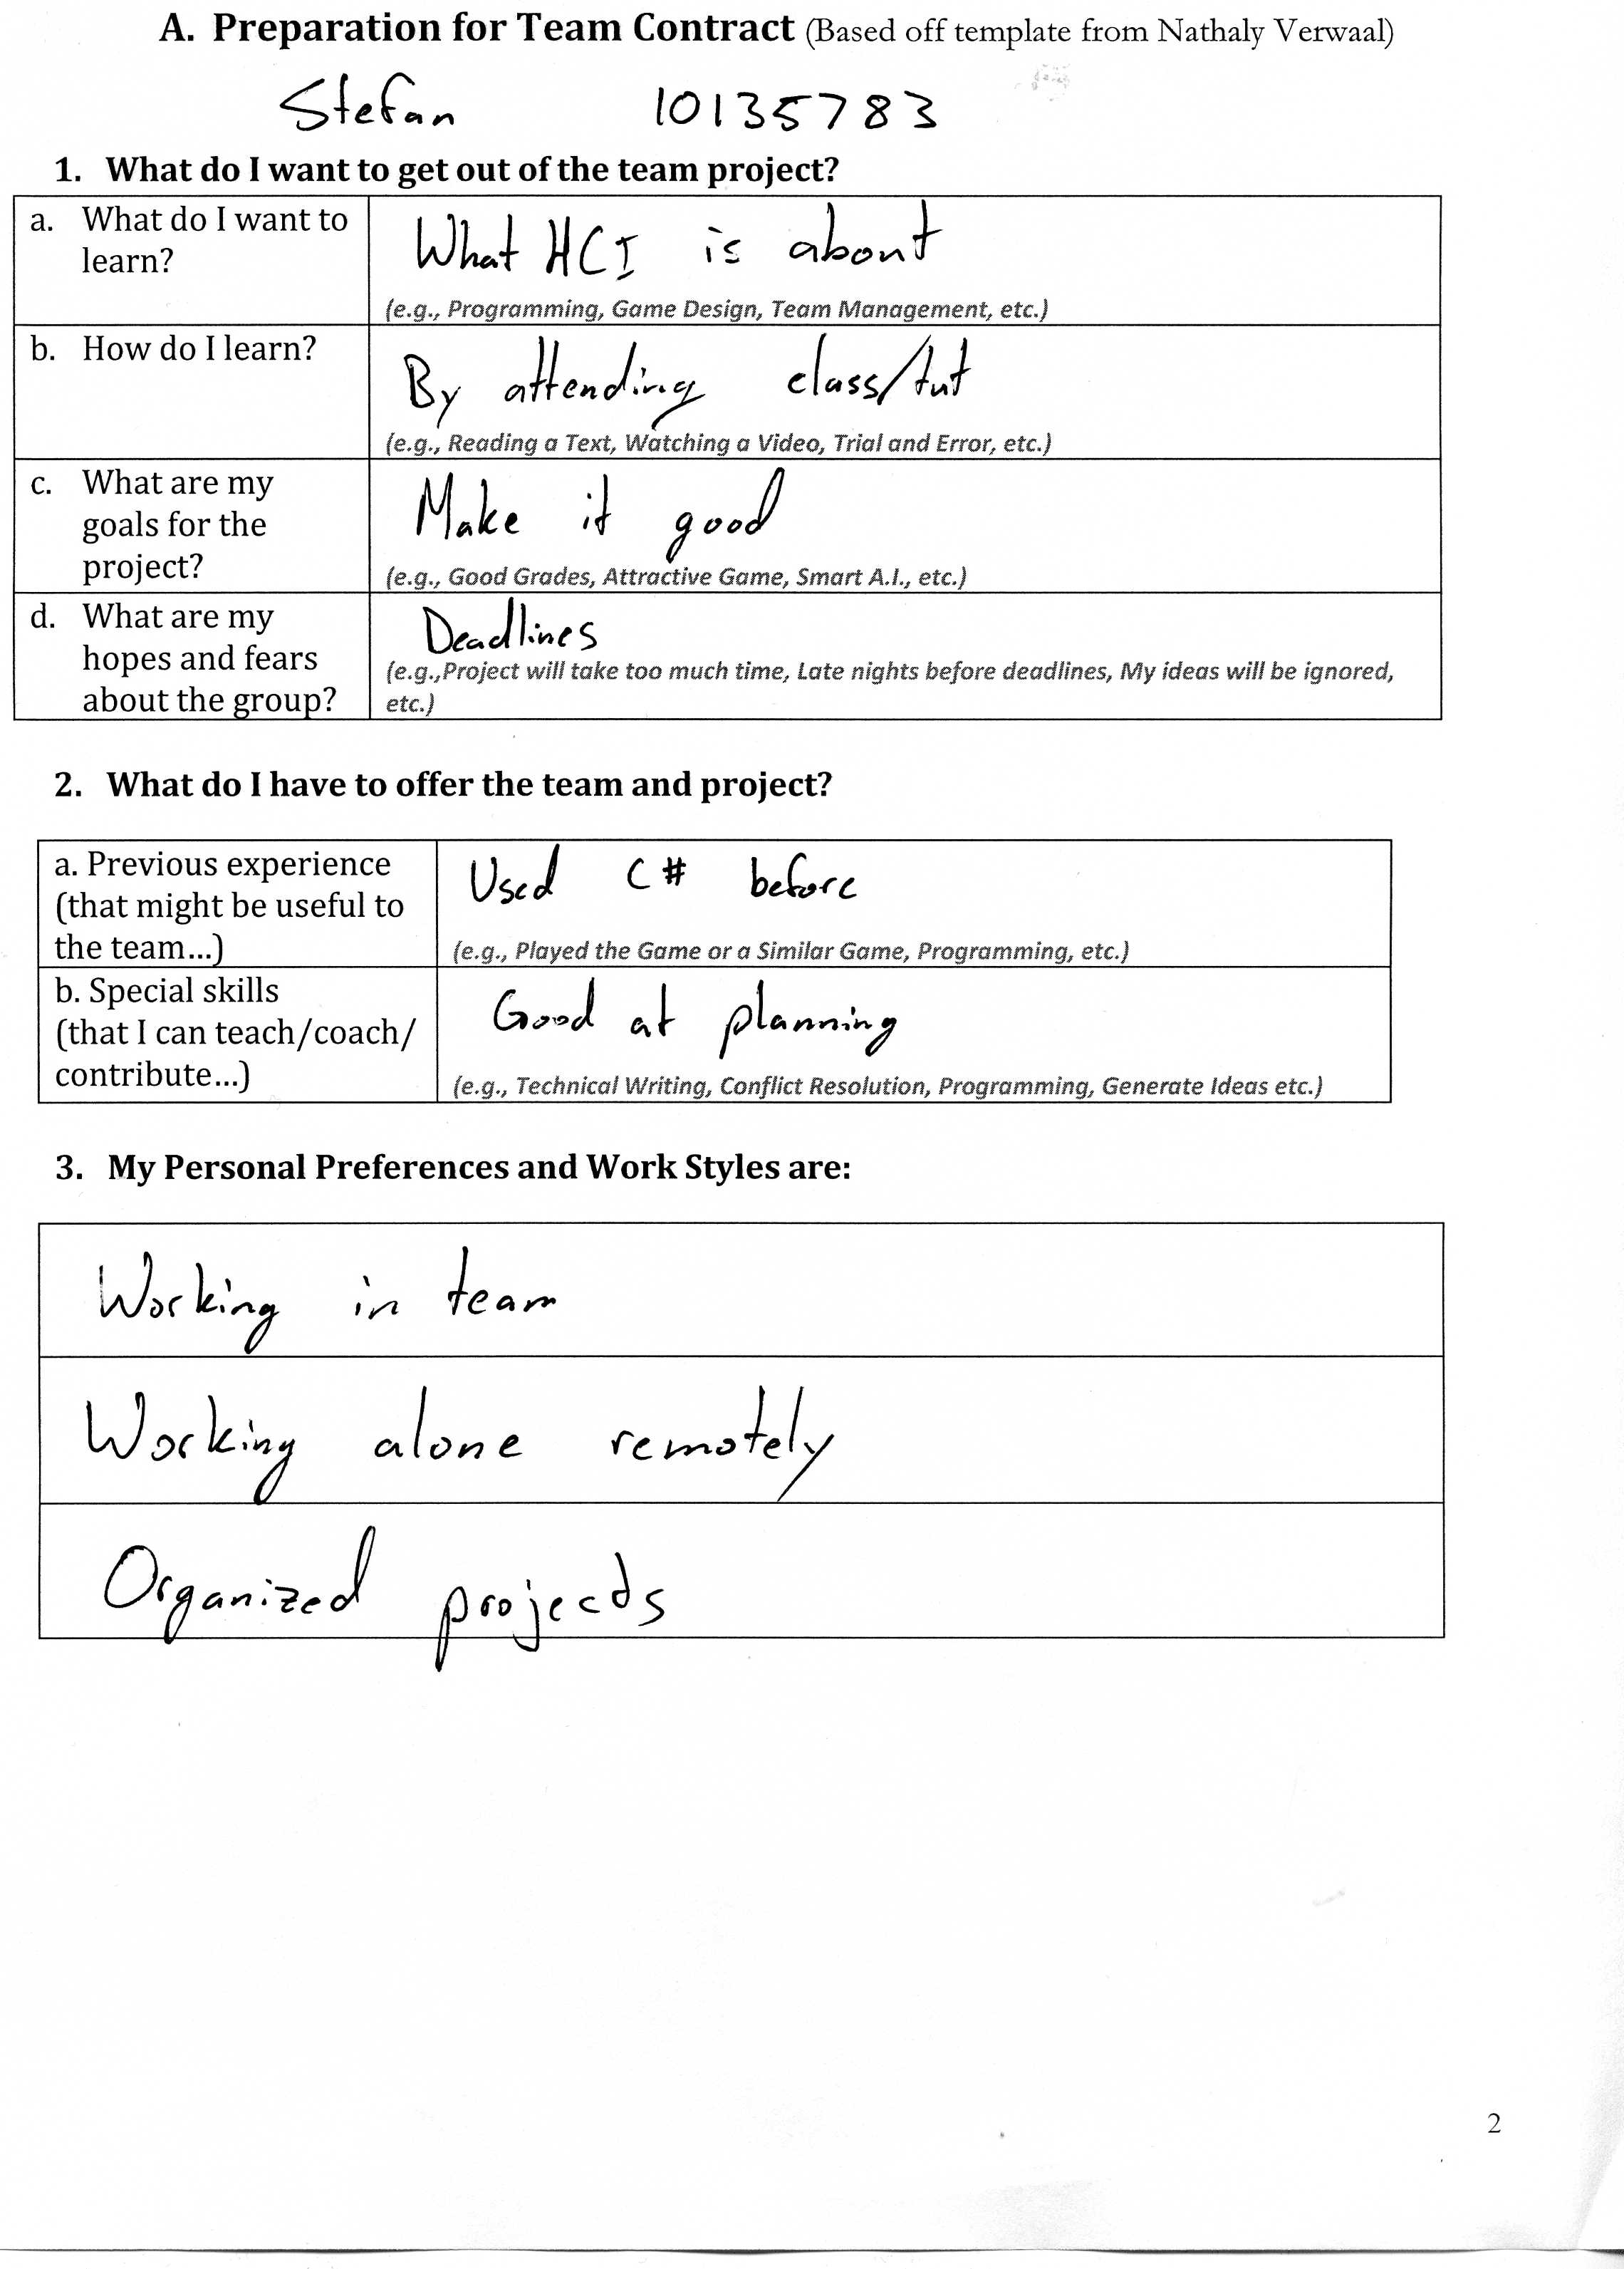 A. Preparation for Team Contract (Based off template from Nathaly Verwaal)
Stefan 10135783
1. What do I want to get out of the team project?
a. What do I want to learn?
What HCI is about
(e.g., Programming, Game Design, Team Management, etc.)
b. How do I learn?
By attending class/tut
(e.g., Reading a Text, Watching a Video, Trial and Error, etc.)
c. What are my goals for the project?
Make it good
(e.g., Good Grades, Attractive Game, Smart A.I., etc.)
d. What are my hopes and fears about the group?
Deadlines
(e.g.,Project will take too much time, Late nights before deadlines, My ideas will be ignored,
etc.)
2. What do I have to offer the team and project?
a. Previous experience
(that might be useful to
the team...)
Used C# before
(e.g., Played the Game or a Similar Game, Programming, etc.)
b. Special skills
(that I can teach/coach/
contribute...)
Good at planning
(e.g., Technical Writing, Conflict Resolution, Programming, Generate Ideas etc.)
3. My Personal Preferences and Work Styles are:
Working in team
Working alone remotely
Organized projects
2